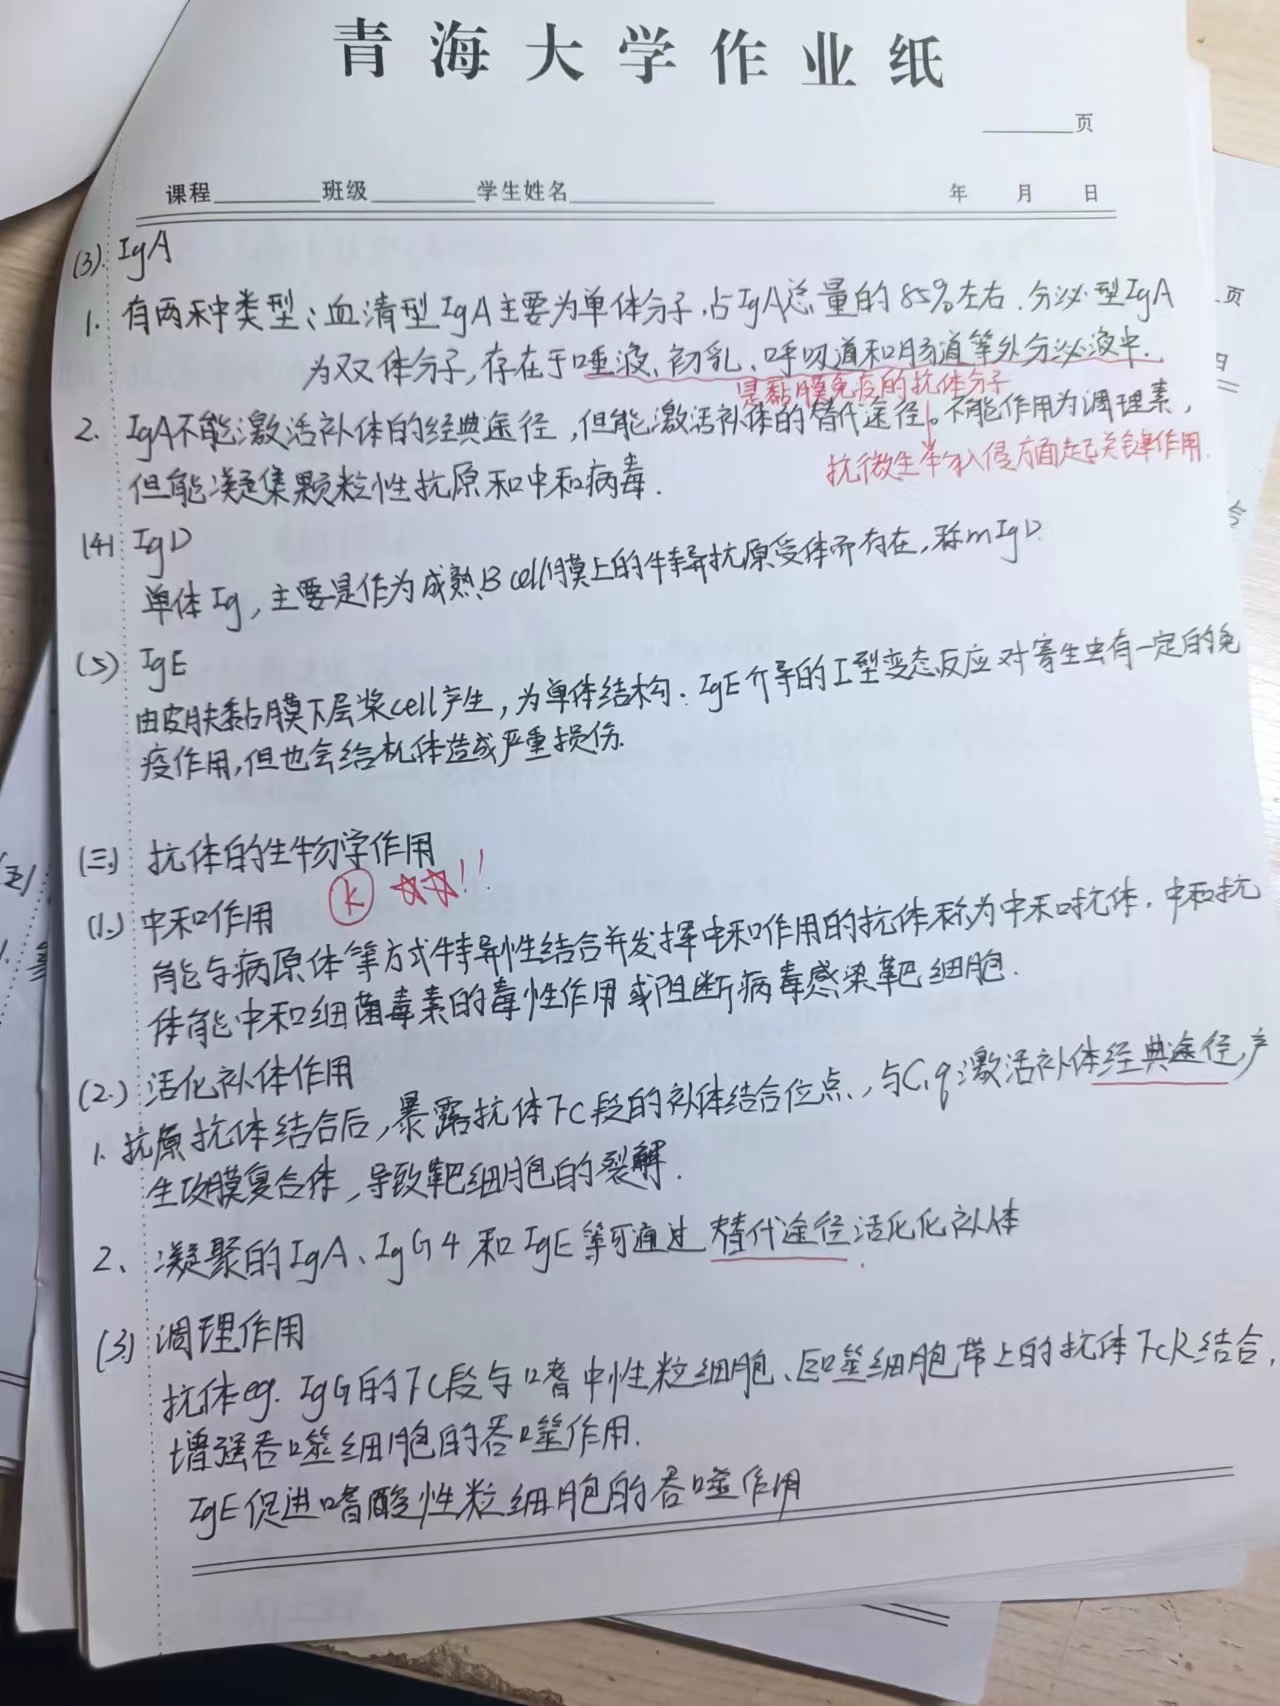 青海大学作业纸
页
课程 班级 学生姓名 年 月 日
(3). IgA
1. 有两种类型：血清型IgA主要为单体分子，占IgA总量的85%左右．分泌型IgA
为双体分子，存在于唾液、初乳、呼吸道和肠道等外分泌液中．
是黏膜免疫的抗体分子
2. IgA不能激活补体的经典途径，但能激活补体的替代途径。不能作用为调理素，
抗微生物入侵方面起关键作用．
但能凝集颗粒性抗原和中和病毒．
(4) IgD
单体Ig，主要是作为成熟B cell膜上的特异抗原受体而存在，称mIgD.
(5) IgE
由皮肤黏膜下层浆cell产生，为单体结构．IgE介导的I型变态反应对寄生虫有一定的免
疫作用，但也会给机体造成严重损伤．
(三) 抗体的生物学作用
K ☆☆!!
(1.) 中和作用
能与病原体等方式特异性结合并发挥中和作用的抗体称为中和抗体．中和抗
体能中和细菌毒素的毒性作用或阻断病毒感染靶细胞．
(2.) 活化补体作用
1. 抗原抗体结合后，暴露抗体Fc段的补体结合位点、，与C1q激活补体经典途径，产
生攻膜复合体，导致靶细胞的裂解．
2、凝聚的IgA、IgG4和IgE等可通过替代途径活化化补体．
(3) 调理作用
抗体eg. IgG的Fc段与嗜中性粒细胞、巨噬细胞带上的抗体FcR结合，
增强吞噬细胞的吞噬作用．
IgE促进嗜酸性粒细胞的吞噬作用
页